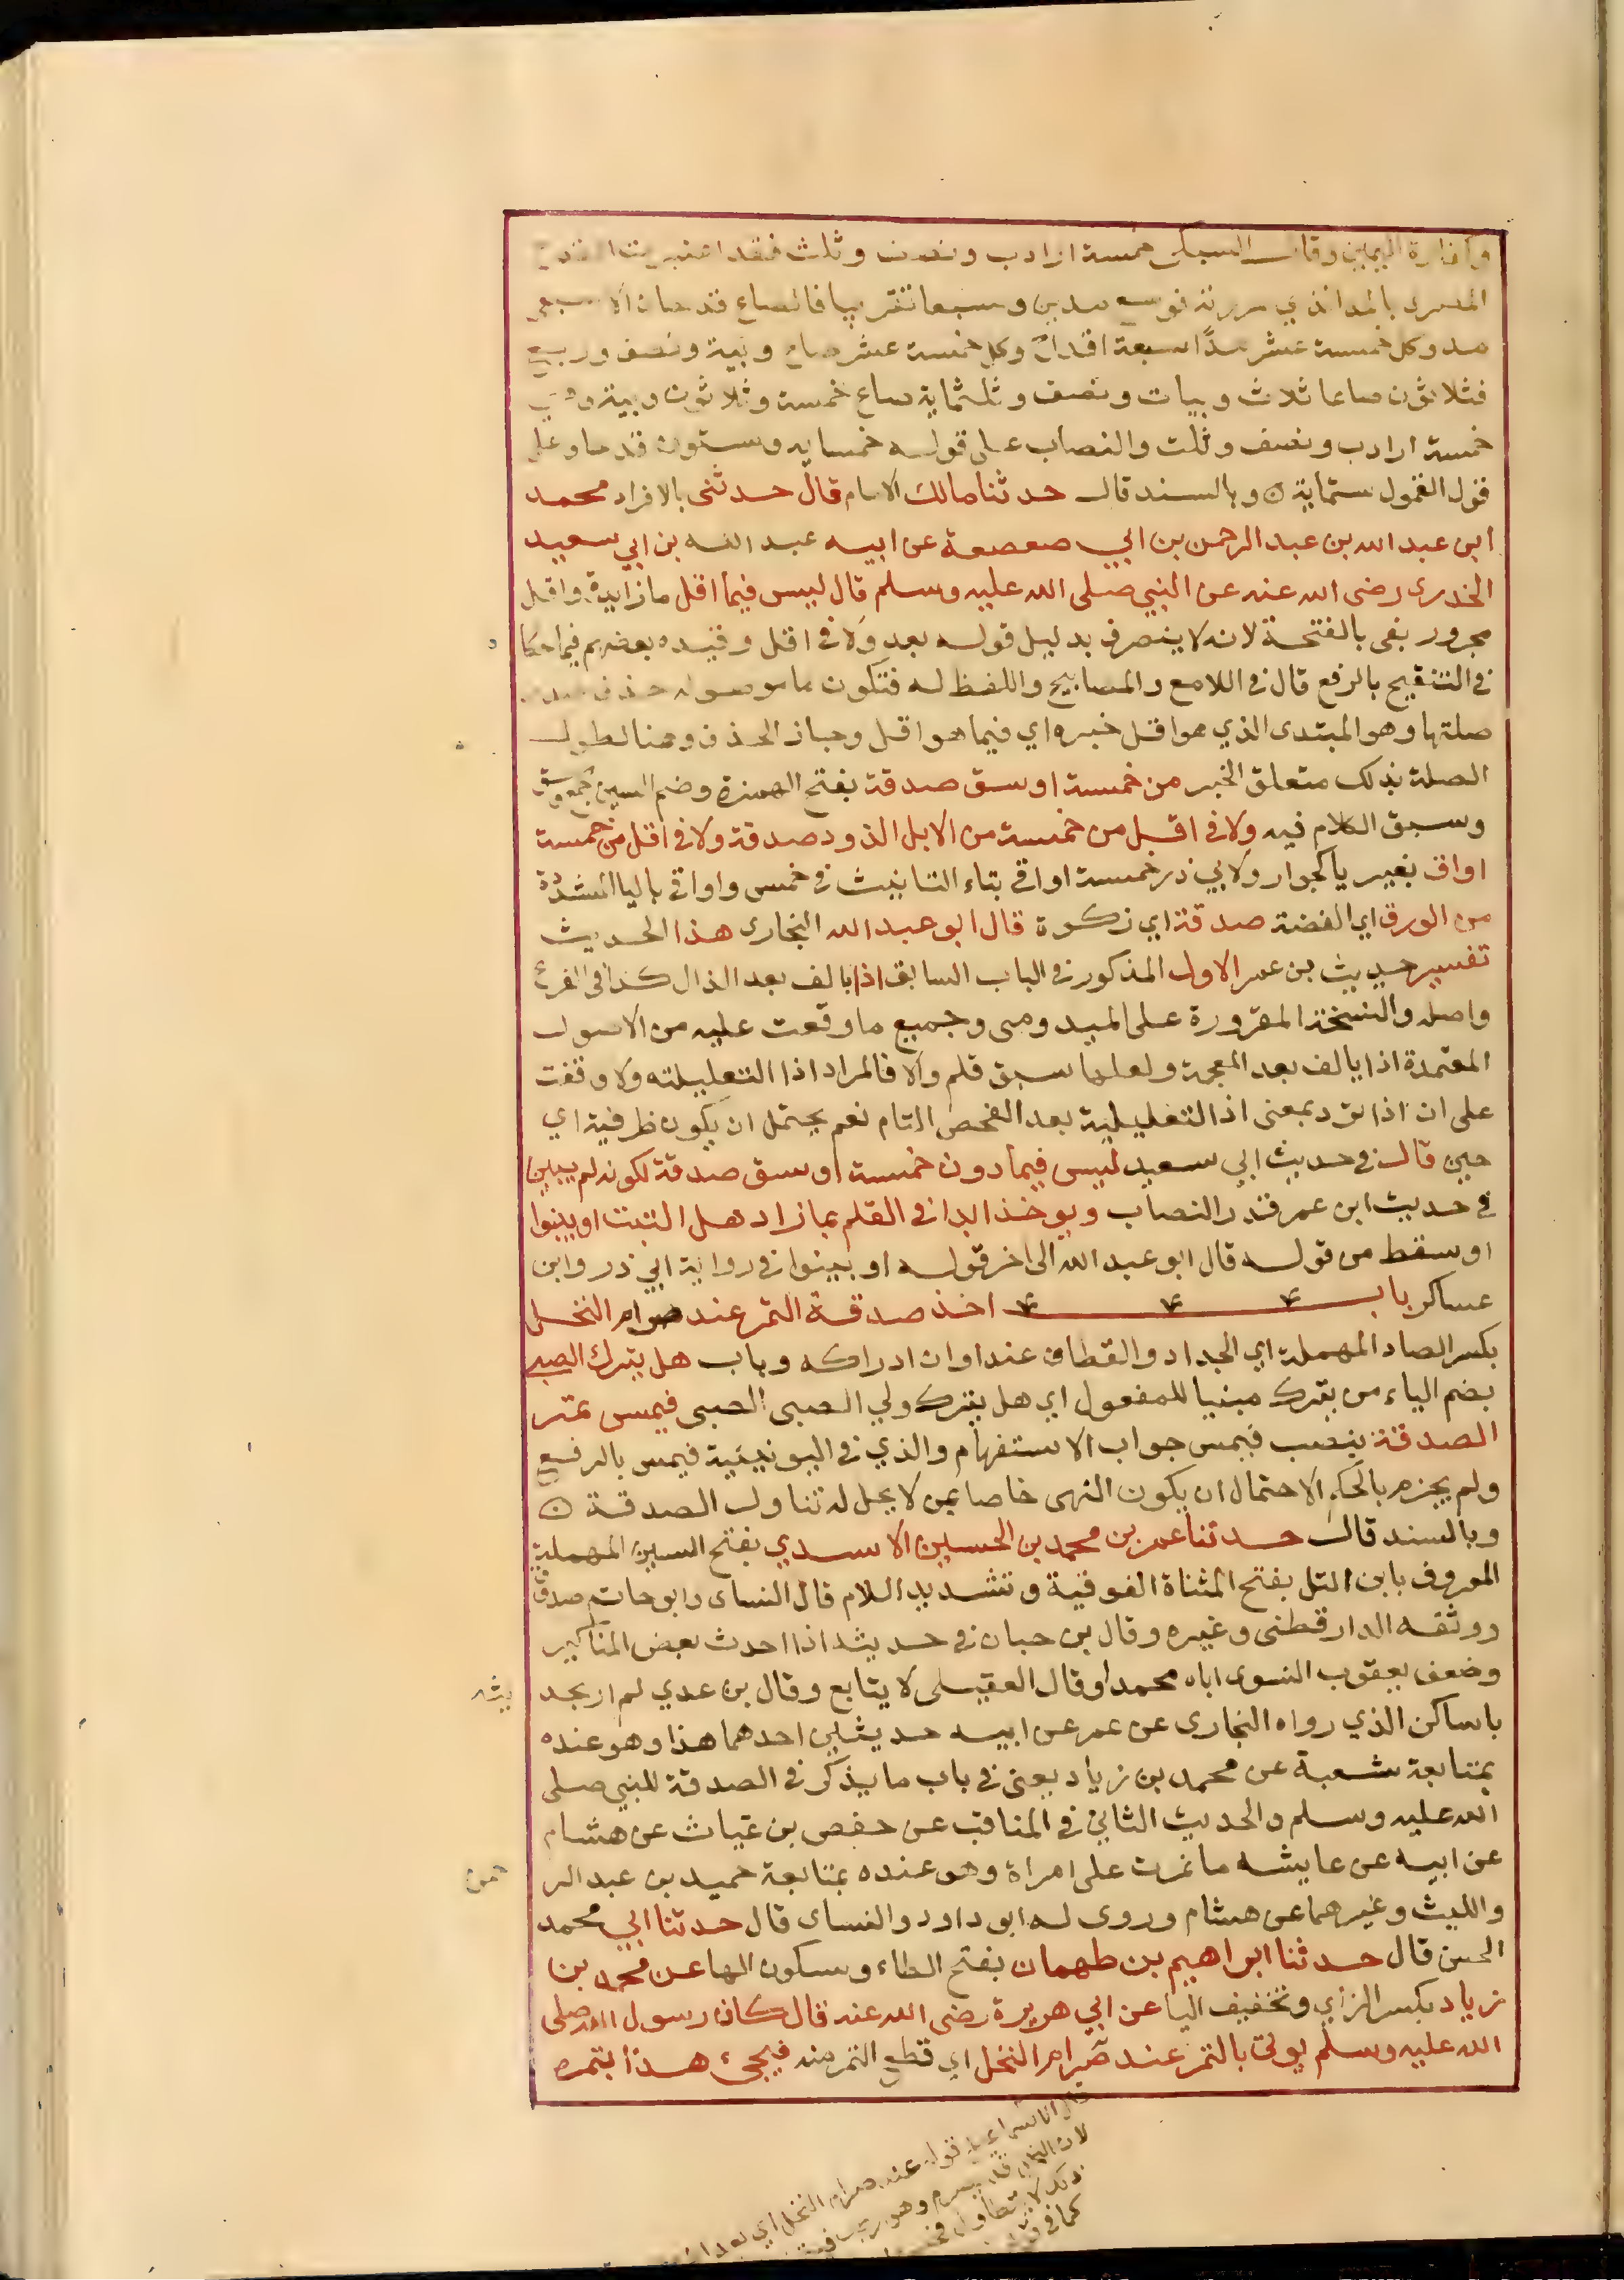 وكفارة اليمين وقال السبكى خمسة ارادب ونصف وثلث فقد اعتبرت القدح
المصرى بالمد الذي حررته فوسع مدين وسبعا تقريبا فالصاع قدحان الا سبعى
مد وكل خمسة عشر مدًا سبعة اقداح وكل خمسة عشر صاع ويبة ونصف وربع
فثلاثون صاعا ثلاث ويبات ونصف وثلثماية صاع خمسة وثلاثون ويبة وهي
خمسة ارادب ونصف وثلث والنصاب على قوله خمسايه وستون قدحا وعلى
قول القمولى ستماية ۞ وبالسند قال حدثنا مالك الامام قال حدثنى بالافراد محمد
ابن عبد الله بن عبد الرحمن بن ابي صعصعة عن ابيه عبد الله بن ابي سعيد
الخدرى رضى الله عنه عن النبي صلى الله عليه وسلم قال ليس فيما اقل ما زايدة واقل
مجرور بفى بالفتحة لانه لا ينصرف بدليل قوله بعد ولا فى اقل وقيده بعضهم فيما حكا
فى التنقيح بالرفع قال فى اللامع والمصابيح واللفظ له فتكون ما موصوله حذف صدر
صلتها وهو المبتدى الذي هو اقل خبره اي فيما هو اقل وجاز الحذف وهنا لطول
الصلة بذلك متعلق الخبر من خمسة اوسق صدقة بفتح الهمزة وضم السين جمع وسق
وسبق الكلام فيه ولا فى اقل من خمسة من الابل الذود صدقة ولا فى اقل من خمسة
اواق بغير يا كجوار ولابي ذر خمسة اواقى بتاء التانيث فى خمس واواقى باليا المشددة
من الورق اي الفضة صدقة اي زكوة قال ابو عبد الله البخارى هذا الحديث
تفسير حديث بن عمر الاول المذكور فى الباب السابق اذا بالف بعد الذال كذا فى الفرع
واصله والنسخة المقرورة على الميدومى وجميع ما وقعت عليه من الاصول
المعتمدة اذا بالف بعد المعجمة ولعلها سبق قلم والا فالمراد اذا التعليلته ولا وقفت
على ان اذا ترد بمعنى اذ التعليلية بعد الفحص التام نعم يحتمل ان يكون ظرفية اي
حين قال فى حديث ابي سعيد ليس فيما دون خمسة اوسق صدقة لكونه لم يبين
فى حديث ابن عمر قدر النصاب ويوخذ ابدا فى القلم بما زاد هل الثبت او بينوا
او سقط من قوله قال ابو عبد الله الى اخر قوله او بينوا فى رواية ابي ذر وابن
عساكر باب اخذ صدقة التمر عند صرام النخل
بكسر الصاد المهملة اي الجداد والقطاف عند اوان ادراكه وباب هل يترك الصبي
بضم الياء من يترك مبنيا للمفعول اي هل يترك ولي الصبى الصبى فيمس تمر
الصدقة بنصب فيمس جواب الاستفهام والذي فى اليونينية فيمس بالرفع
ولم يجزم بالحكم الاحتمال ان يكون النهى خاصا بمن لا يحل له تناول الصدقة ۞
وبالسند قال حدثنا عمر بن محمد بن الحسين الاسدي بفتح السين المهملة
المعروف بابن التل بفتح المثناة الفوقية وتشديد اللام قال النساى وابو حاتم صدوق
ووثقه الدارقطنى وغيره وقال بن حبان فى حديثه اذا احدث بعض المناكير
وضعف يعقوب النسوى اباه محمدا وقال العقيلى لا يتابع وقال بن عدي لم ار بحد
يثه
باساكن الذي رواه البخارى عن عمر عن ابيه حديثلين احدهما هذا وهو عنده
بمتابعة شعبة عن محمد بن زياد يعنى فى باب ما يذكر فى الصدقة للنبي صلى
الله عليه وسلم والحديث الثاني فى المناقب عن حفص بن غياث عن هشام
عن ابيه عن عايشه ما غرت على امراة وهو عنده بمتابعة حميد بن عبد الر
حمن
والليث وغيرهما عن هشام وروى له ابو داود والنساى قال حدثنا ابي محمد
الحسن قال حدثنا ابراهيم بن طهمان بفتح الطاء وسكون الها عن محمد بن
زياد بكسر الزاي وتخفيف اليا عن ابي هريرة رضى الله عنه قال كان رسول الله صلى
الله عليه وسلم يوتى بالتمر عند صرام النخل اي قطع التمر منه فيجيء هذا بتمره
قال الاسماعيلى قوله عند صرام النخل اي بعد ان
لان النخل قد يصرم وهو رطب فيتمر